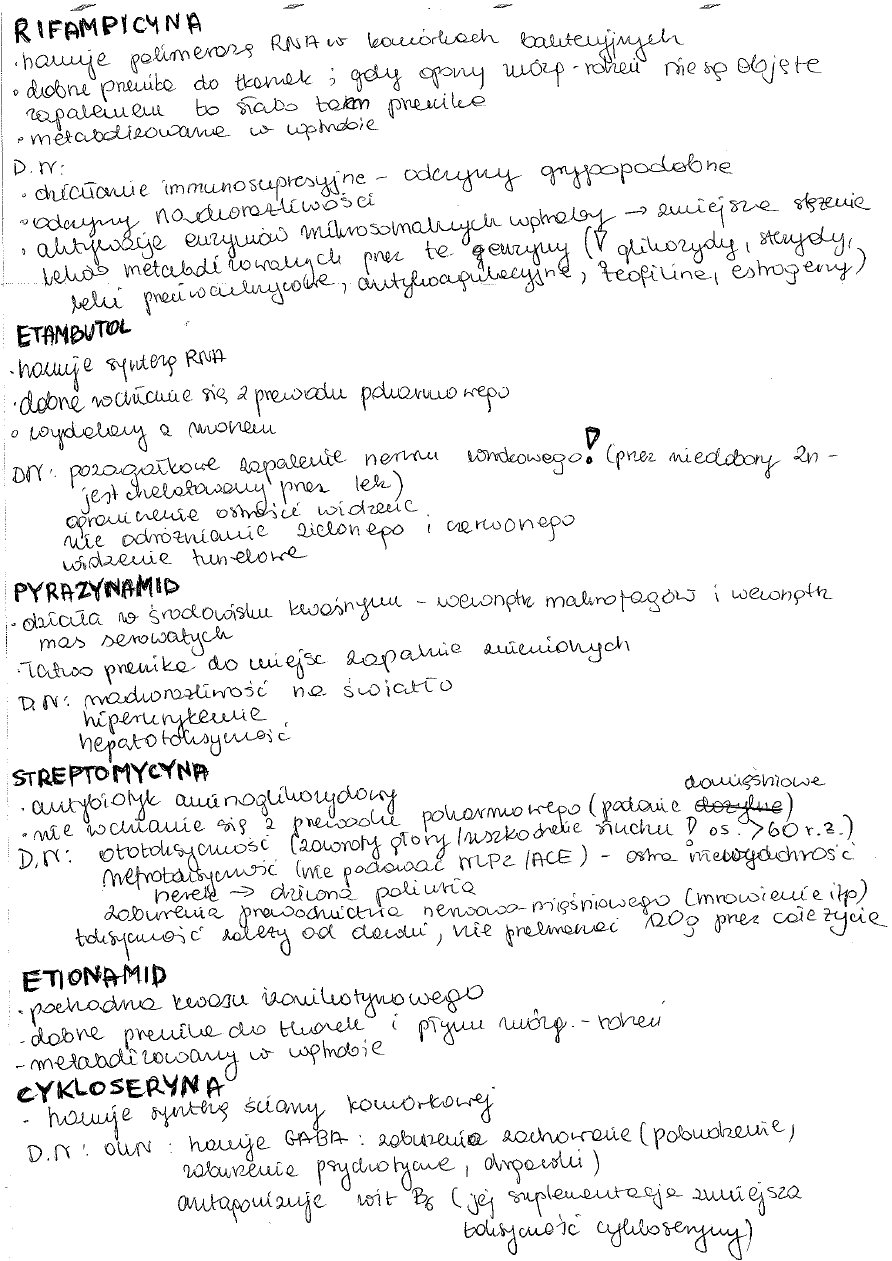 RIFAMPICYNA
· hamuje polimerazę RNA w komórkach bakteryjnych
· dobrze przenika do tkanek ; gdy opony mózg-rdzeń nie są objęte
zapaleniem to słabo tam przenika
· metabolizowana w wątrobie
D.N:
· działanie immunosupresyjne – odczyny grypopodobne
· odczyny nadwrażliwości
· aktywacja enzymów mikrosomalnych wątroby → zmniejsza stężenie
leków metabolizowanych przez te enzymy (! glikozydy, sterydy,
leki przeciwcukrzycowe, antykoagulacyjne, teofilina, estrogeny)
ETAMBUTOL
· hamuje syntezę RNA
· dobre wchłanianie się z przewodu pokarmowego
· wydalany z moczem
DN: pozagałkowe zapalenie nerwu wzrokowego! (przez niedobory Zn –
jest chelatowany przez lek)
ograniczenie ostrości widzenia
nie odróżnianie zielonego i czerwonego
widzenie tunelowe
PYRAZYNAMID
· działa w środowisku kwaśnym – wewnątrz makrofagów i wewnątrz
mas serowatych
· łatwo przenika do miejsc zapalnie zmienionych
D.N: nadwrażliwość na światło
hiperurykemia
hepatotoksyczność
STREPTOMYCYNA
· antybiotyk aminoglikozydowy
domięśniowe
· nie wchłania się z przewodu pokarmowego (podanie dożylne)
D.N: ototoksyczność (zawroty głowy / uszkodzenie słuchu ! os. >60 r.ż.)
nefrotoksyczność (nie podawać MPZ/ACE) – ostra niewydolność
nerek → poliuria
zaburzenia przewodnictwa nerwowo-mięśniowego (mrowienie itp)
toksyczność zależy od dawki, nie przekraczać 120g przez całe życie
ETIONAMID
· pochodna kwasu izonikotynowego
- dobrze przenika do tkanek i płynu mózg.-rdzeń
- metabolizowany w wątrobie
CYKLOSERYNA
- hamuje syntezę ściany komórkowej
D.N: OUN : hamuje GABA : zaburzenia zachowania (pobudzenie,
zaburzenia psychotyczne, drgawki)
antagonizuje wit B6 (jej suplementacja zmniejsza
toksyczność cykloseryny)